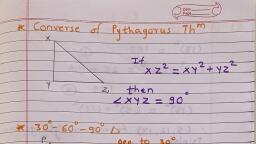 * Converse of Pythagorus Thm
X
If
XZ² = XY² + YZ²
Y
Z
then
∠XYZ = 90°
* 30°-60°-90° Δ
P